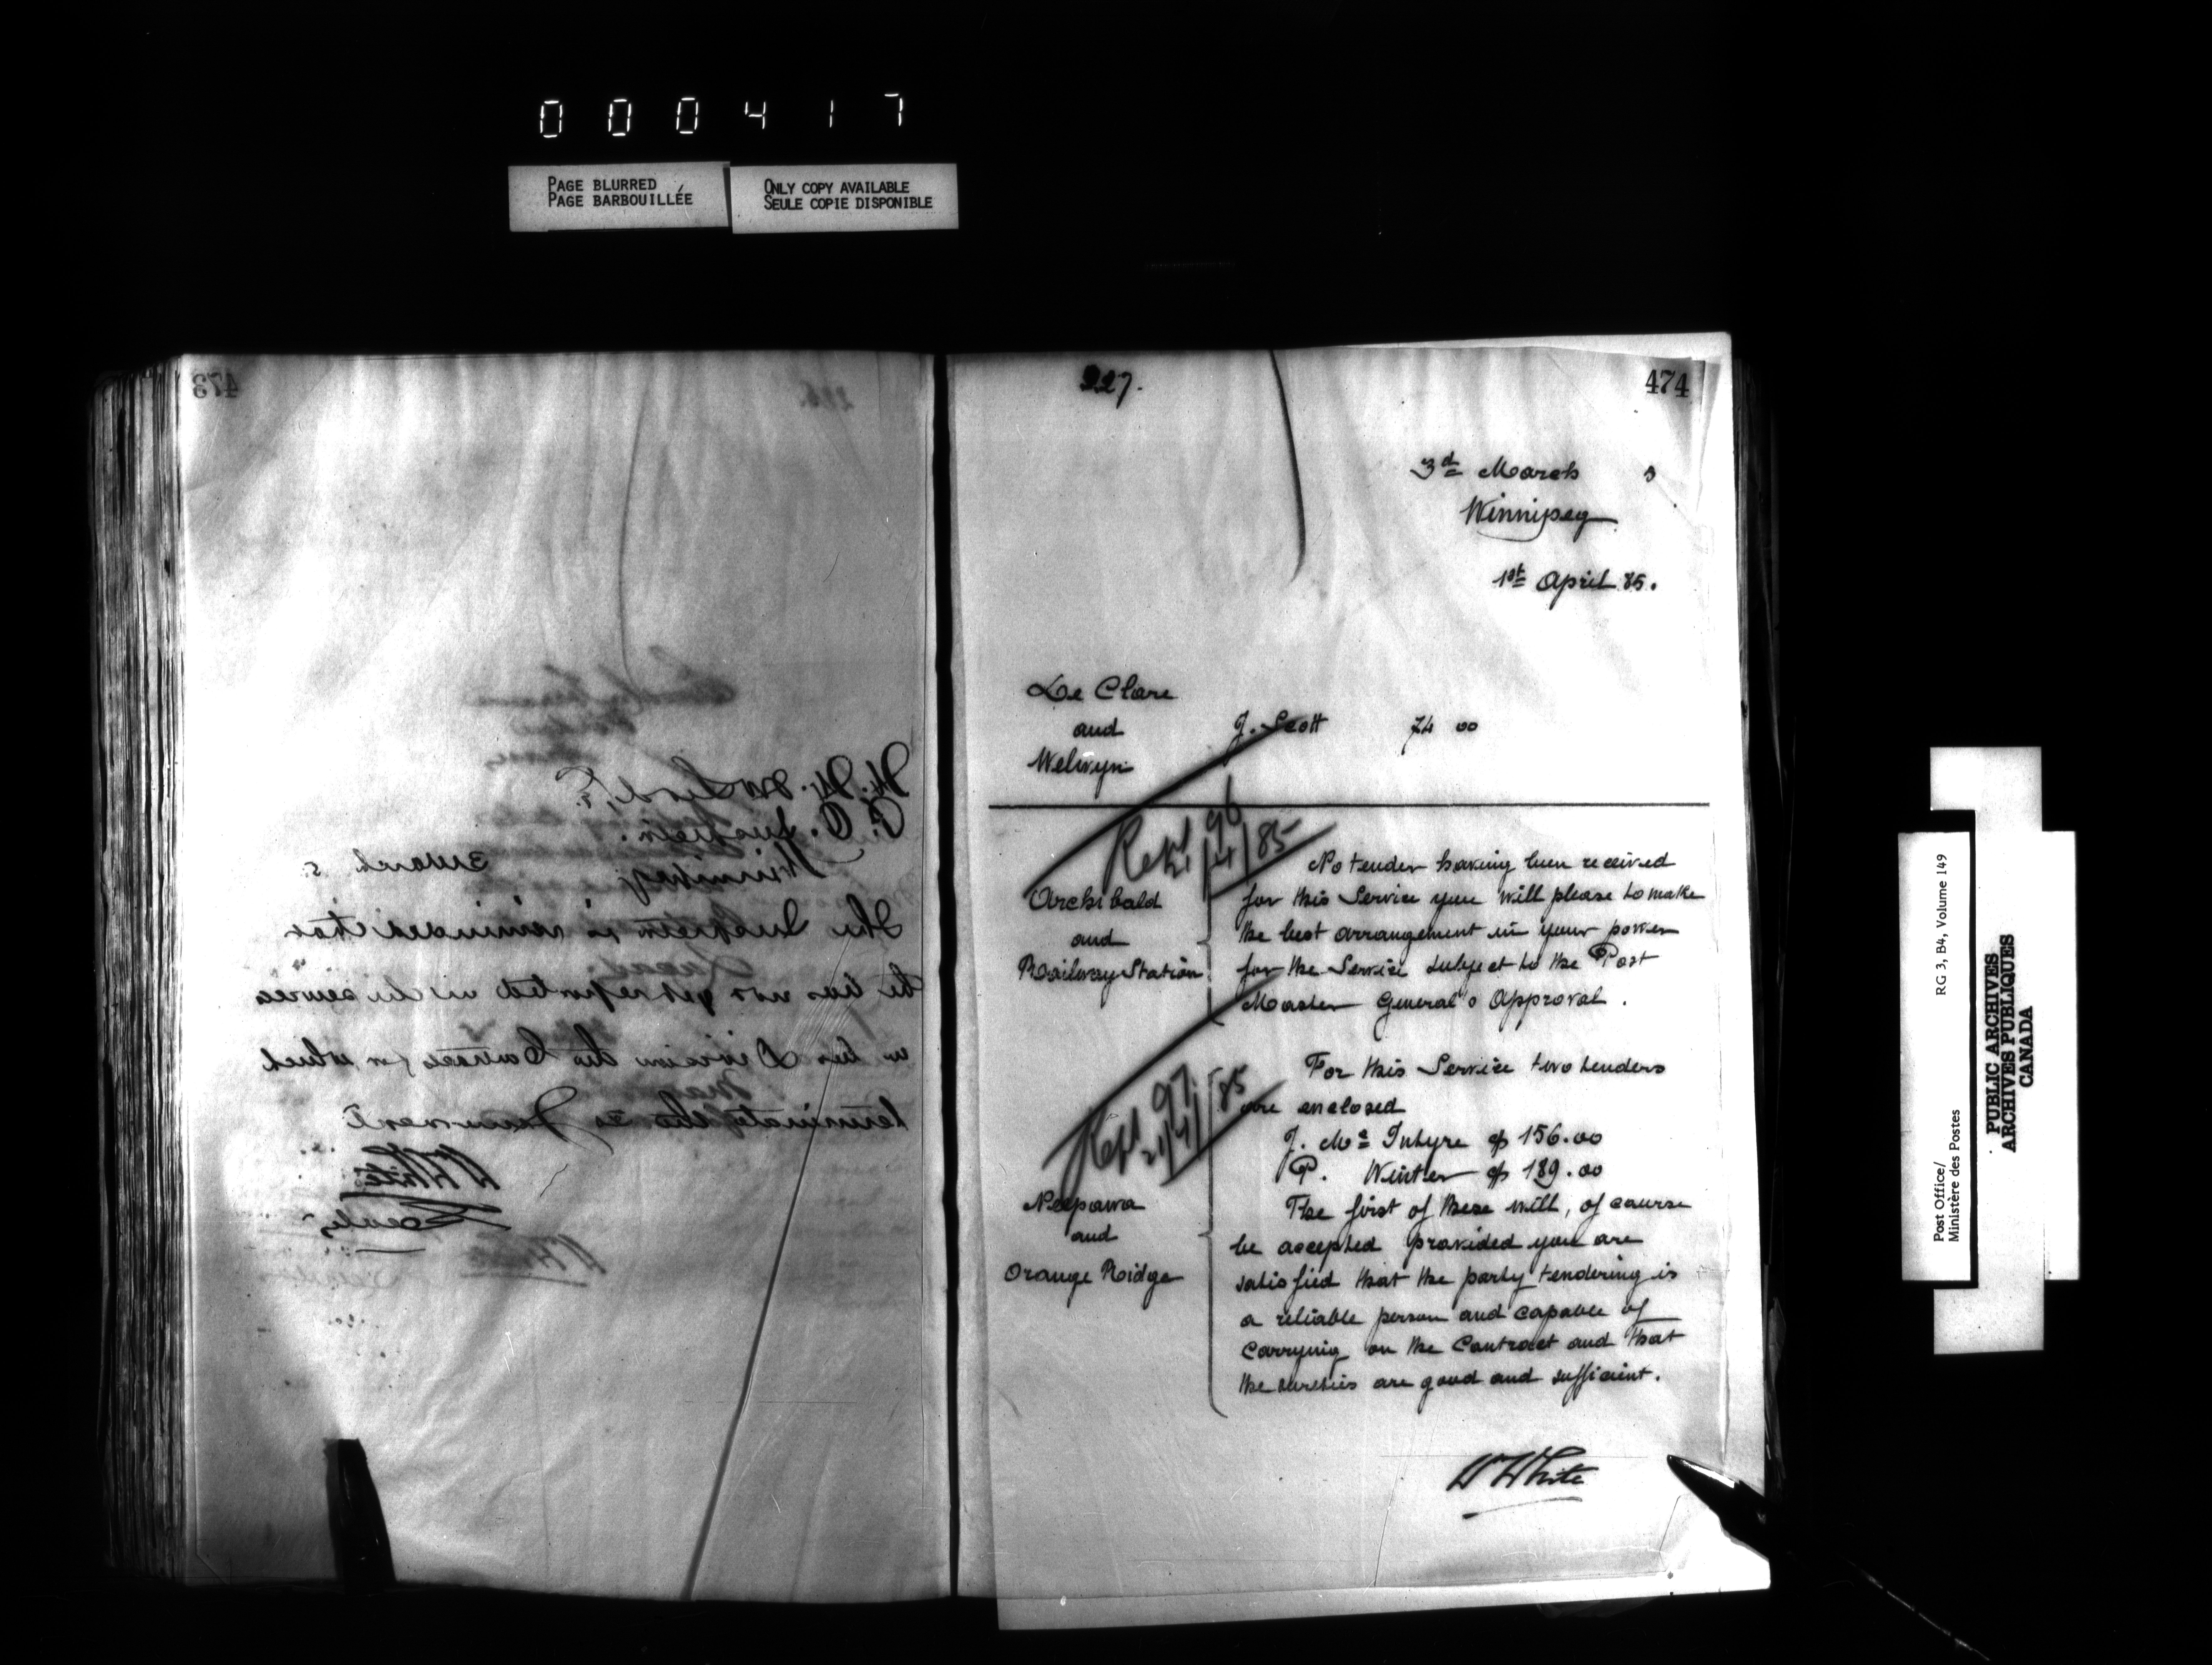 000417
PAGE BLURRED
PAGE BARBOUILLÉE
ONLY COPY AVAILABLE
SEULE COPIE DISPONIBLE
473
H. H. McLeod, Esq.
P. O. Inspector.
Winnipeg
3 March 5
The Inspector is reminded that
he has not yet reported
in his Division the
terminated the
W White
Secretary
227.
474
3d March 5
Winnipeg
1st April 85.
De Clare
and
Welwyn
J. Scott 74 00
Rept 96
21/4/85
Archibald
and
Railway Station
No tender having been received
for this Service you will please to make
the best arrangement in your power
for the Service subject to the Post
Master General's Approval.
Rept 97
21/4/85
Neepawa
and
Orange Ridge
For this Service two tenders
are enclosed
J. Mc Intyre @ 156.00
P. Winter @ 189.00
The first of these will, of course
be accepted provided you are
satisfied that the party tendering is
a reliable person and capable of
carrying on the Contract and that
the sureties are good and sufficient.
W White
Post Office/
Ministère des Postes
RG 3, B4, Volume 149
PUBLIC ARCHIVES
ARCHIVES PUBLIQUES
CANADA